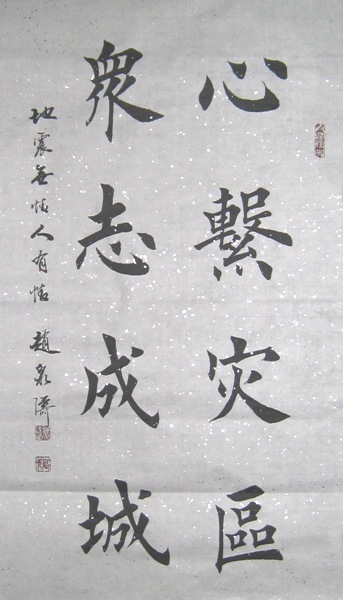 心繫灾區
衆志成城
地震無情人有情 趙泉濤